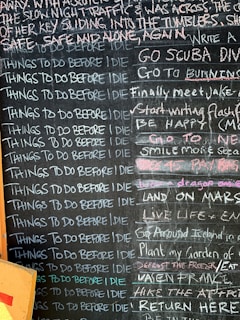 AWAY. WITH
THE SLOW NIGHT TRAFFIC & WAS ACROSS. THE
OF HER KEY SLIDING INTO THE TUMBLERS.
SAFE. SAFE AND ALONE, AGAIN. WRITE A
THINGS TO DO BEFORE I DIE GO SCUBA DIV
THINGS TO DO BEFORE I DIE GO TO
THINGS TO DO BEFORE I DIE Finally meet Jake
THINGS TO DO BEFORE I DIE Start writing
THINGS TO DO BEFORE I DIE BE HAPPY
THINGS TO DO BEFORE I DIE GO TO NE
THINGS TO DO BEFORE I DIE SMILE MORE
THINGS TO DO BEFORE I DIE
THINGS TO DO BEFORE I DIE
THINGS TO DO BEFORE I DIE LAND ON MARS
THINGS TO DO BEFORE I DIE LIVE LIFE + EN
THINGS TO DO BEFORE I DIE Go Around Iceland in
THINGS TO DO BEFORE I DIE Plant my Garden of
THINGS TO DO BEFORE I DIE DEFROST THE FREEZER/EAT
TO DO BEFORE I DIE VALEN FRANCE
TO DO BEFORE I DIE HIKE THE
BEFORE I DIE RETURN HERE